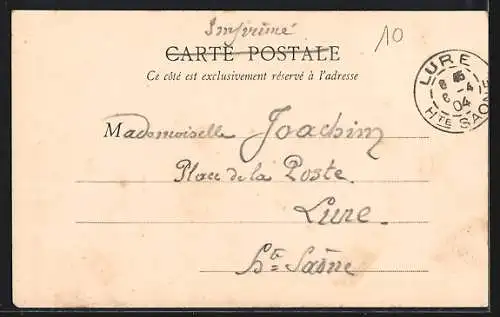 Imprimé
10
CARTE POSTALE
Ce côté est exclusivement réservé à l'adresse
LURE
6 -4
04
HTE SAONE
Mademoiselle Joachim
Place de la Poste.
Lure.
Hte Saône